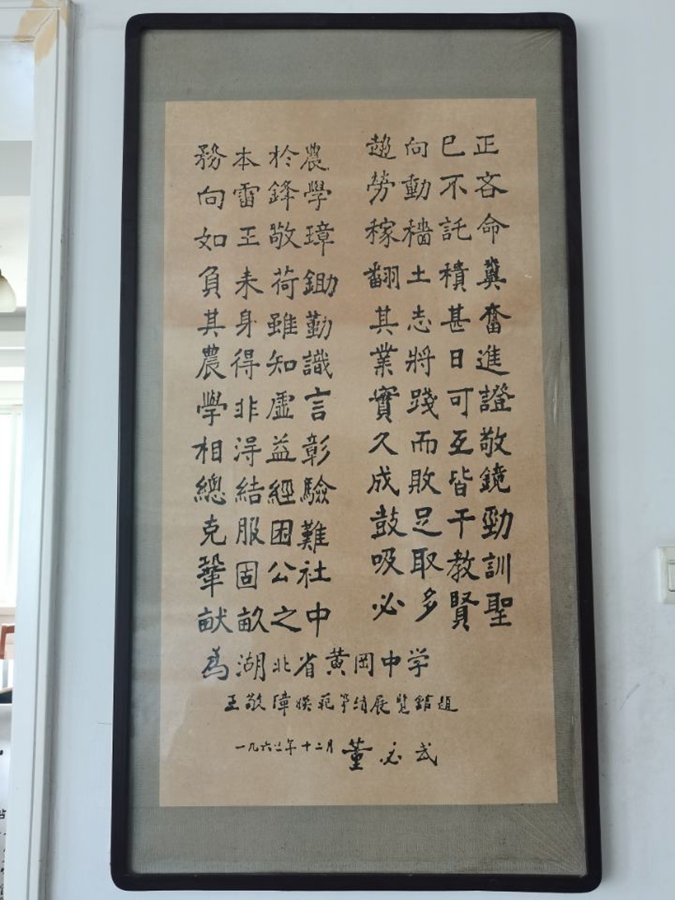 務本於農
向雷鋒學
如王敬璋
負耒荷鋤
其身雖勤
農得知識
學非虛言
相得益彰
總結經驗
克服困難
鞏固公社
畎畝之中
趨向已正
勞動不吝
稼穡託命
翻土積糞
其志甚奮
業將日進
實踐可證
久而互敬
成敗皆鏡
鼓足干勁
吸取教訓
必多賢聖
為湖北省黄岡中学
王敬璋模範事績展覽館題
一九六三年十二月 董必武